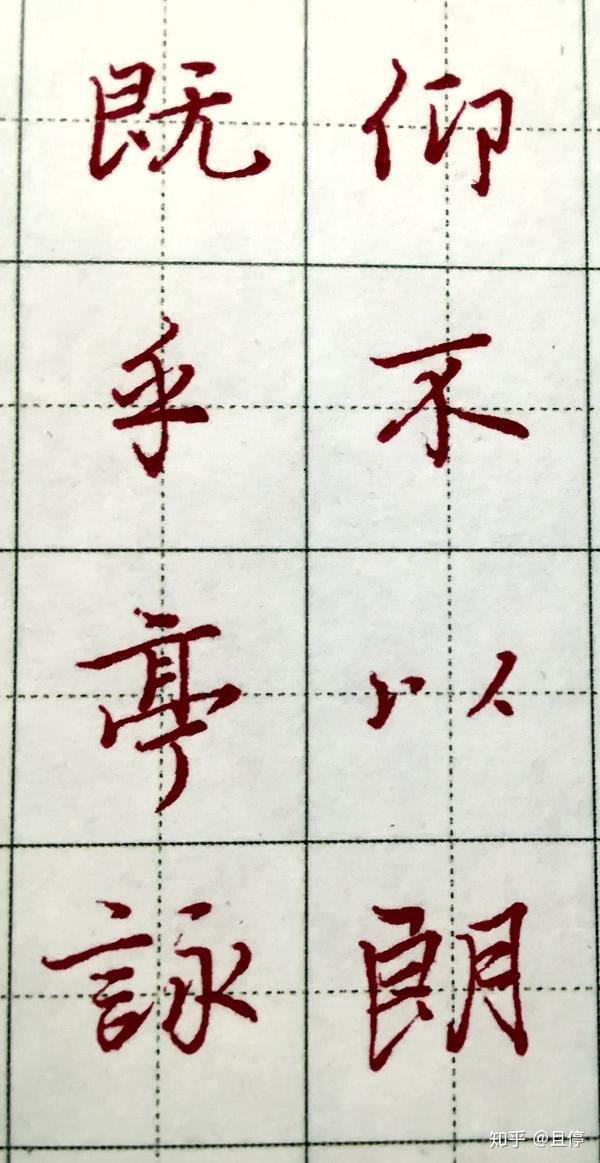 仰不以朗
既乎亭詠
知乎 @且停